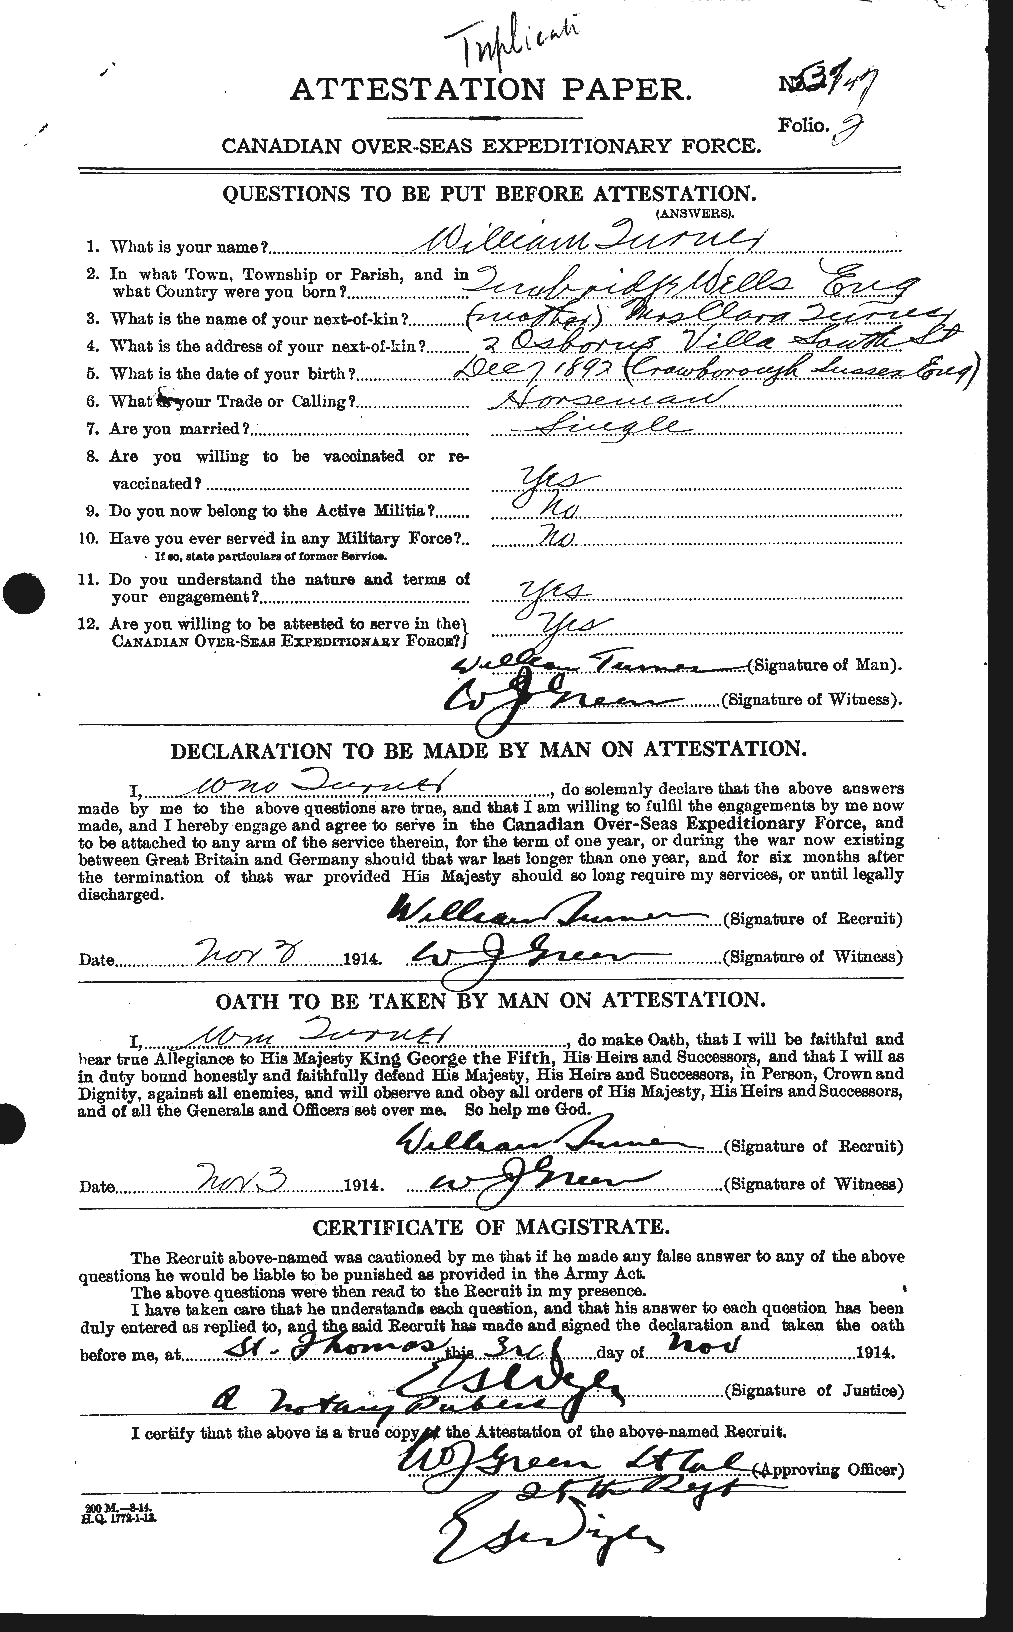 Triplicate
ATTESTATION PAPER.
No. 53947
Folio. 2
CANADIAN OVER-SEAS EXPEDITIONARY FORCE.
QUESTIONS TO BE PUT BEFORE ATTESTATION.
(ANSWERS).
1. What is your name? William Turner
2. In what Town, Township or Parish, and in
what Country were you born? Tunbridge Wells Eng
3. What is the name of your next-of-kin? (mother) Mrs Clara Turner
4. What is the address of your next-of-kin? 2 Osborne Villa South St
5. What is the date of your birth? Dec 7 1892 (Crowborough Sussex Eng)
6. What is your Trade or Calling? Horseman
7. Are you married? Single
8. Are you willing to be vaccinated or re-
vaccinated? Yes
9. Do you now belong to the Active Militia? No
10. Have you ever served in any Military Force? No
If so, state particulars of former Service.
11. Do you understand the nature and terms of
your engagement? Yes
12. Are you willing to be attested to serve in the
CANADIAN OVER-SEAS EXPEDITIONARY FORCE? Yes
William Turner (Signature of Man).
W J Green (Signature of Witness).
DECLARATION TO BE MADE BY MAN ON ATTESTATION.
I, Wm Turner, do solemnly declare that the above answers
made by me to the above questions are true, and that I am willing to fulfil the engagements by me now
made, and I hereby engage and agree to serve in the Canadian Over-Seas Expeditionary Force, and
to be attached to any arm of the service therein, for the term of one year, or during the war now existing
between Great Britain and Germany should that war last longer than one year, and for six months after
the termination of that war provided His Majesty should so long require my services, or until legally
discharged.
William Turner (Signature of Recruit)
Date Nov 2 1914. W J Green (Signature of Witness)
OATH TO BE TAKEN BY MAN ON ATTESTATION.
I, Wm Turner, do make Oath, that I will be faithful and
bear true Allegiance to His Majesty King George the Fifth, His Heirs and Successors, and that I will as
in duty bound honestly and faithfully defend His Majesty, His Heirs and Successors, in Person, Crown and
Dignity, against all enemies, and will observe and obey all orders of His Majesty, His Heirs and Successors,
and of all the Generals and Officers set over me. So help me God.
William Turner (Signature of Recruit)
Date Nov 3 1914. W J Green (Signature of Witness)
CERTIFICATE OF MAGISTRATE.
The Recruit above-named was cautioned by me that if he made any false answer to any of the above
questions he would be liable to be punished as provided in the Army Act.
The above questions were then read to the Recruit in my presence.
I have taken care that he understands each question, and that his answer to each question has been
duly entered as replied to, and the said Recruit has made and signed the declaration and taken the oath
before me, at St. Thomas this 3rd day of Nov 1914.
(Signature of Justice)
A Notary Public
I certify that the above is a true copy of the Attestation of the above-named Recruit.
W J Green Lt Col (Approving Officer)
25th Regt
200 M.—8-14.
H.Q. 1772-1-13.